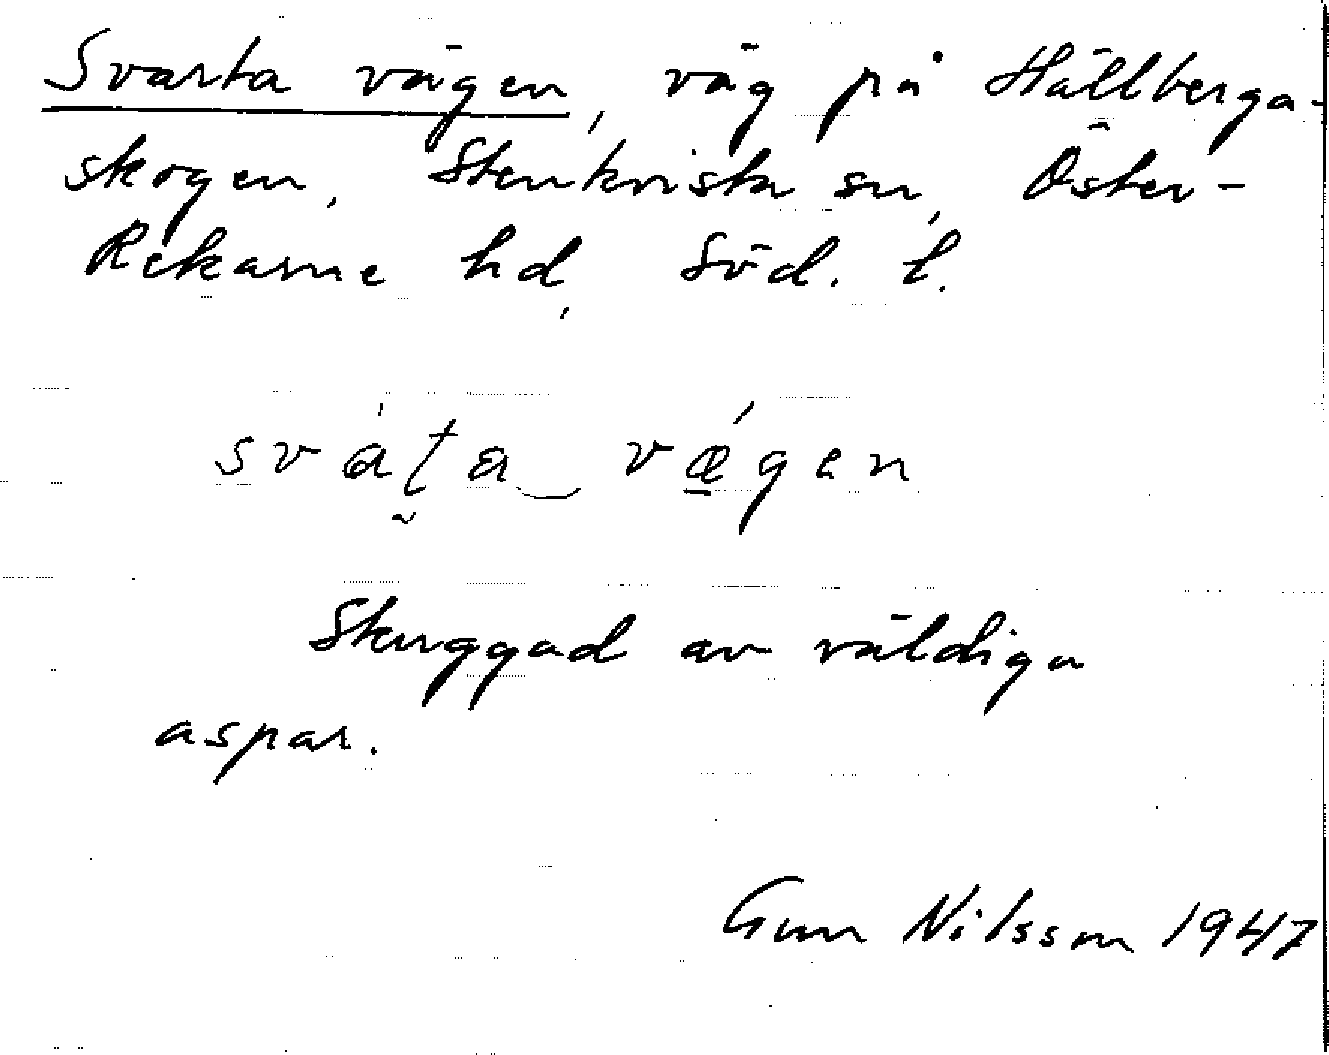 Svarta vägen, väg på Hällberga-
skogen, Stenkvista sn, Öster-
Rekarne hd, Söd. l.
sváʈa vǽgen
Skuggad av väldiga
aspar.
Gun Nilsson 1947